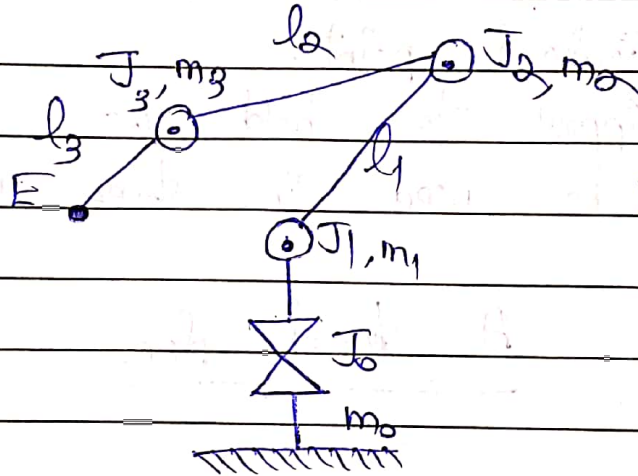 l2
J2, m2
J3, m3
l3
l1
E
J1, m1
J0
m0